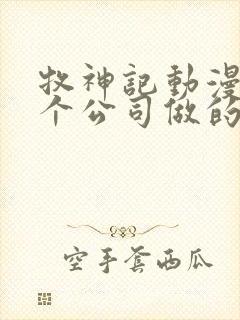 牧神記動漫
个公司做的
空手套西瓜